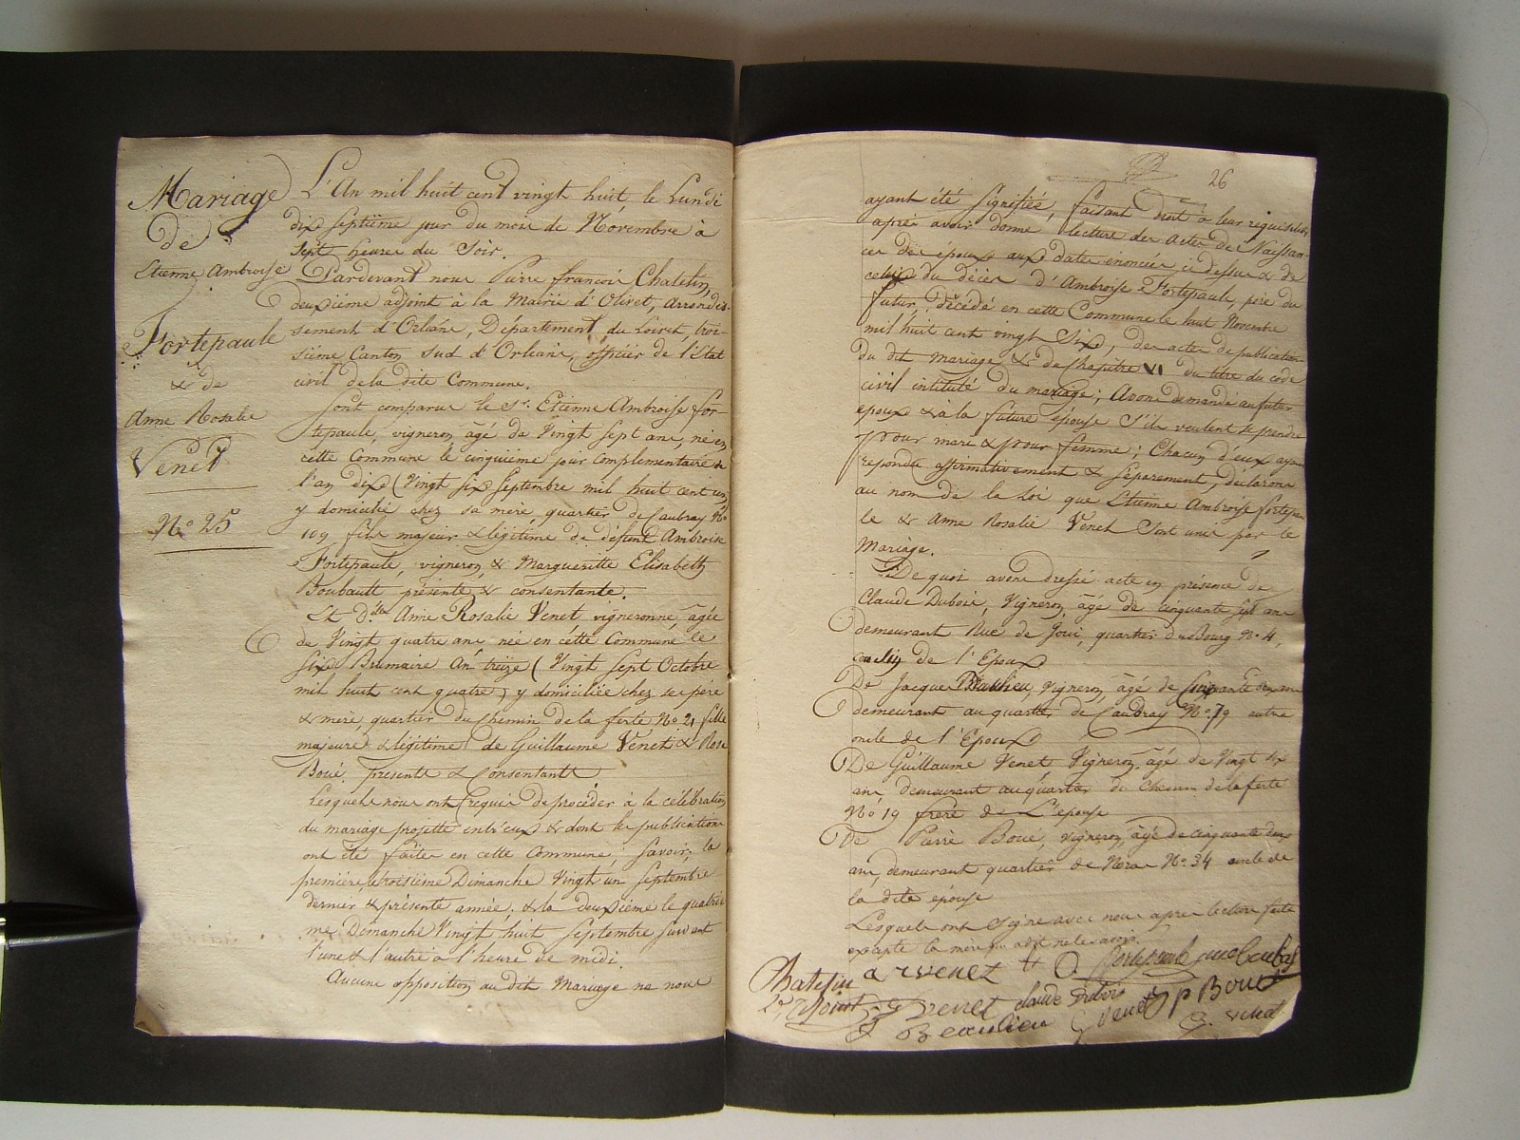 Mariage
de
Etienne Ambroise
Fortepaule
& de
Anne Rosalie
Venet
No. 25
L'An mil huit cent vingt huit, le Lundi
dix septième jour du mois de Novembre à
sept heures du Soir.
Pardevant nous Pierre françois Chatelin,
deuxième adjoint à la Mairie d'Olivet, arrondis-
sement d'Orléans, Département du Loiret, troi-
sième Canton sud d'Orléans, officier de l'Etat
civil de la dite Commune.
Sont comparus le Sr. Etienne Ambroise for-
tepaule, vigneron, âgé de Vingt sept ans, né en
cette Commune le cinquième jour complementaire de
l'an dix (Vingt six Septembre mil huit cent un)
y domicilié chez sa mère quartier de Caubray No.
109 fils majeur & légitime de défunt Ambroise
Fortepaule, vigneron, & Margueritte Elisabeth
Boubault présente & consentante.
Et Dlle Anne Rosalie Venet, vigneronne, âgée
de Vingt quatre ans, née en cette Commune le
six Brumaire An treize (Vingt sept Octobre
mil huit cent quatre) y domiciliée chez ses père
& mère, quartier du chemin de la ferté No. 21 fille
majeure & légitime de Guillaume Venet & Rose
Boué. présents & Consentants
Lesquels nous ont requis de procéder à la célébration
du mariage projetté entr'eux & dont les publications
ont été faites en cette Commune; Savoir; la
première, troisième Dimanche Vingt un Septembre
dernier & présente année, & la deuxième le quatriè
me Dimanche Vingt huit Septembre suivant
l'une & l'autre à l'heure de midi.
Aucune opposition au dit Mariage ne nous
26
ayant été signifiée, faisant droit à leur réquisition,
après avoir donné lecture des actes de Naissan-
ces des époux aux dates enoncées ci dessus & de
celui du décès d'Ambroise Fortepaule, père du
futur, décédé en cette Commune le huit Novembre
mil huit cent vingt Six, des actes de publications
du dit mariage & de Chapitre VI du titre du code
civil intitulé du mariage; Avons demandé au futur
époux & à la future épouse S'ils veulent se prendre
pour mari & pour femme; Chacun d'eux ayant
repondu affirmativement & séparement, déclarons
au nom de la Loi que Etienne Ambroise fortepau
le & Anne Rosalie Venet Sont unis par le
Mariage.
De quoi avons dressé acte en présence de
Claude Dubois, Vigneron, âgé de cinquante ans
demeurant Rue de Joui, quartier du Bourg No. 4,
cousin de l'Epoux
De Jacques Beaulieu, Vigneron, âgé de ans
demeurant au quartier de Caubray No. 79 autre
oncle de l'Epoux
De Guillaume Venet Vigneron, âgé de Vingt six
ans demeurant au quartier du Chemin de la ferté
No 19 frère de L'épouse
De Pierre Boué, vigneron, âgé de cinquante deux
ans, demeurant quartier de Noras No. 34 oncle de
la dite épouse
Lesquels ont signé avec nous après lecture faite
excepté la mère
Chatelin
2e. Adjoint
a r venet
fortepaule
g venet
claude dubois
p Boué
J Beaulieu
g venet